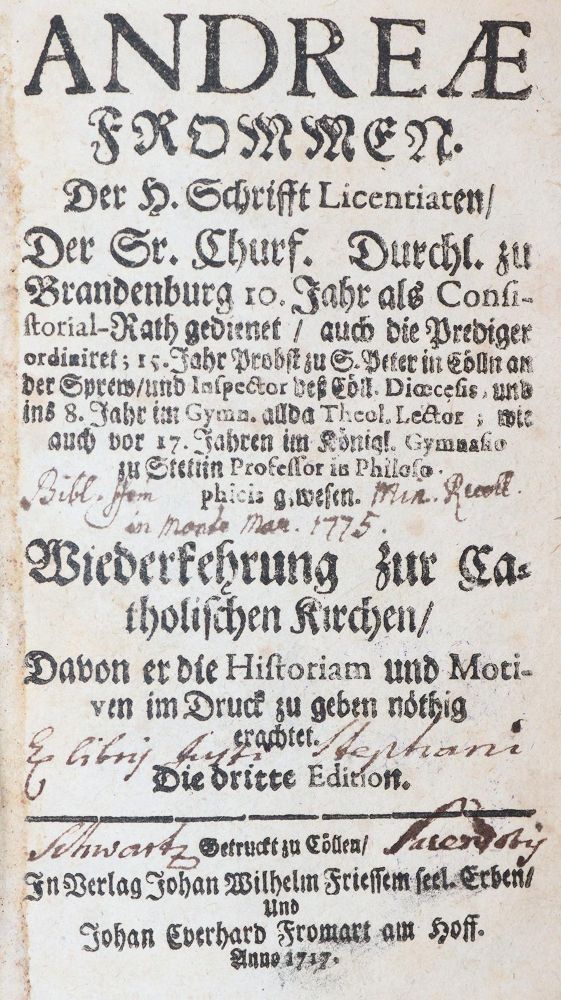 ANDREÆ
FROMMEN.
Der H. Schrifft Licentiaten/
Der Sr. Churf. Durchl. zu
Brandenburg 10. Jahr als Consi-
storial-Rath gedienet / auch die Prediger
ordiniret; 15. Jahr Probst zu S. Peter in Cölln an
der Sprew/und Inspector deß Cöll. Diœcesis, und
ins 8. Jahr im Gymn. allda Theol. Lector; wie
auch vor 17. Jahren im Königl. Gymnasio
zu Stettin Professor in Philoso-
Bibl. phicis gewesen. Min. Recoll.
in monte Mar. 1775.
Wiederkehrung zur Ca-
tholischen Kirchen/
Davon er die Historiam und Moti-
ven im Druck zu geben nöthig
erachtet.
Ex libris Stephani
Die dritte Edition.
Schwartz Getruckt zu Cöllen/
In Verlag Johan Wilhelm Friessem seel. Erben/
Und
Johan Everhard Fromart am Hoff.
Anno 1717.